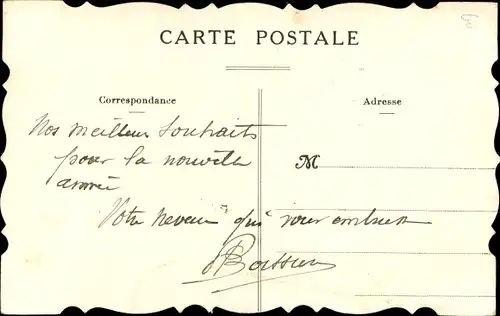 CARTE POSTALE
Correspondance
Adresse
Nos meilleurs souhaits
pour la nouvelle
année
M
Votre neveu qui vous embrasse